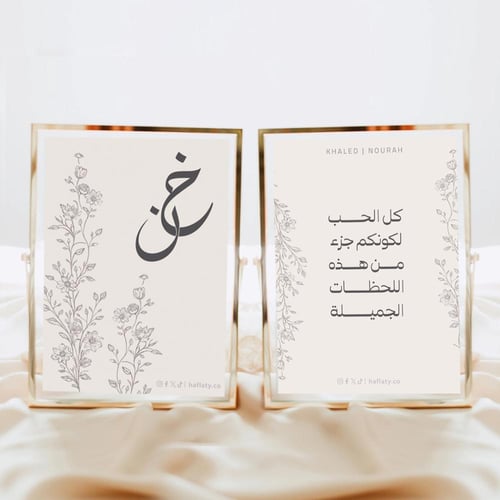 خ ن
KHALED | NOURAH
كل الحب
لكونكم جزء
من هذه
اللحظات
الجميلة
haflaty.co
haflaty.co